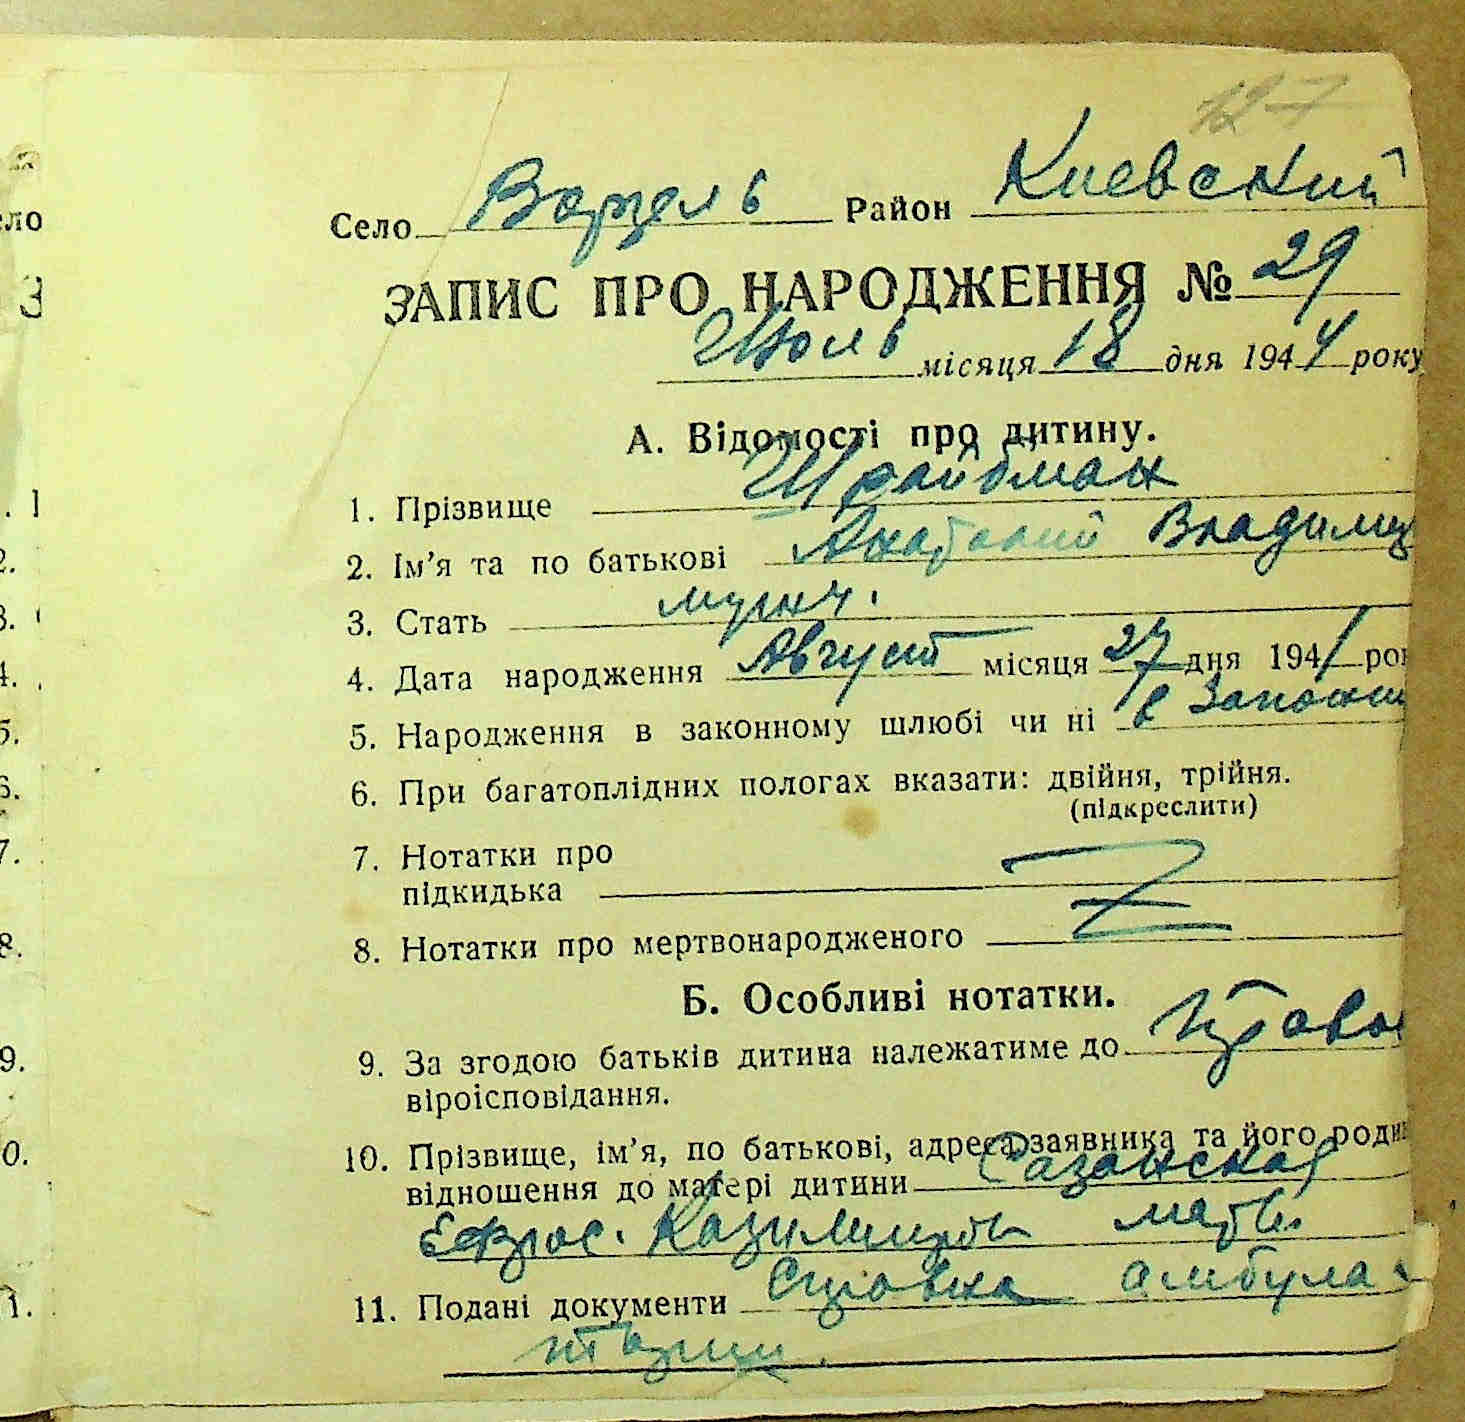 127
Село Ворзель Район Киевский
ЗАПИС ПРО НАРОДЖЕННЯ № 29
Июль місяця 18 дня 1944 року
А. Відомості про дитину.
1. Прізвище Шрайбман
2. Ім'я та по батькові Анатолий Владими
3. Стать мужч.
4. Дата народження Август місяця 27 дня 1941 рок
5. Народження в законному шлюбі чи ні в законн
6. При багатоплідних пологах вказати: двійня, трійня.
(підкреслити)
7. Нотатки про
підкидька
8. Нотатки про мертвонародженого
Б. Особливі нотатки.
9. За згодою батьків дитина належатиме до правос
віроісповідання.
10. Прізвище, ім'я, по батькові, адреса заявника та його родин
відношення до матері дитини Сазанская
Ефрос. Казимиров мать.
11. Подані документи Справка амбула-
тории.